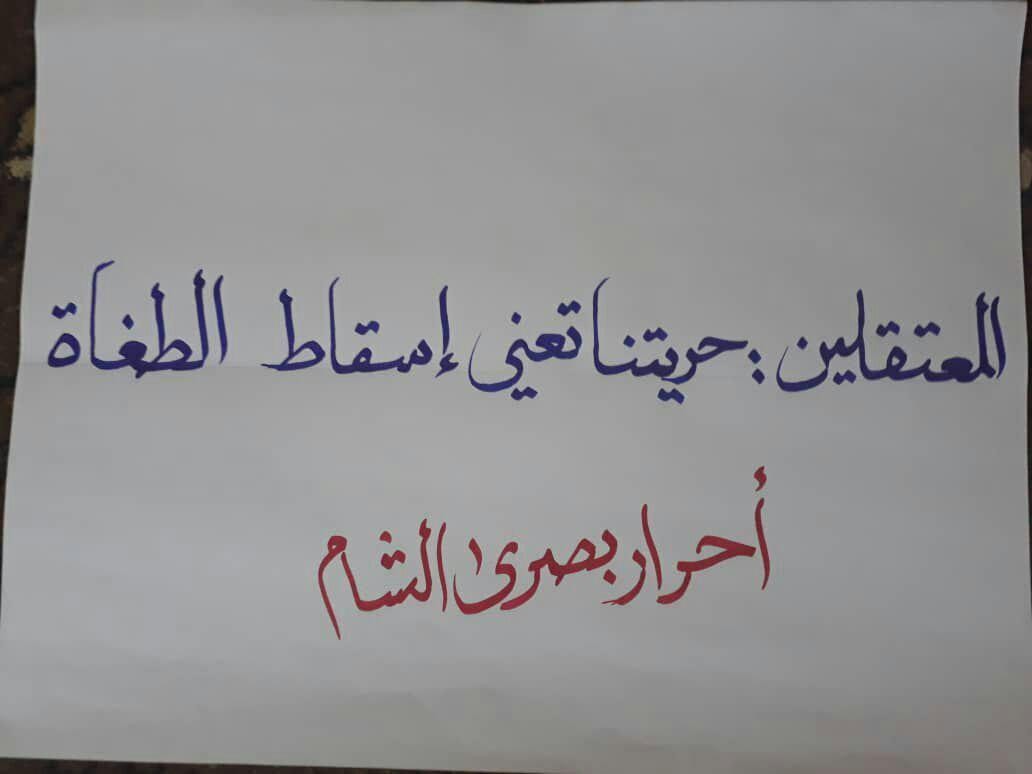 المعتقلين : حريتنا تعني إسقاط الطغاة
أحرار بصرى الشام